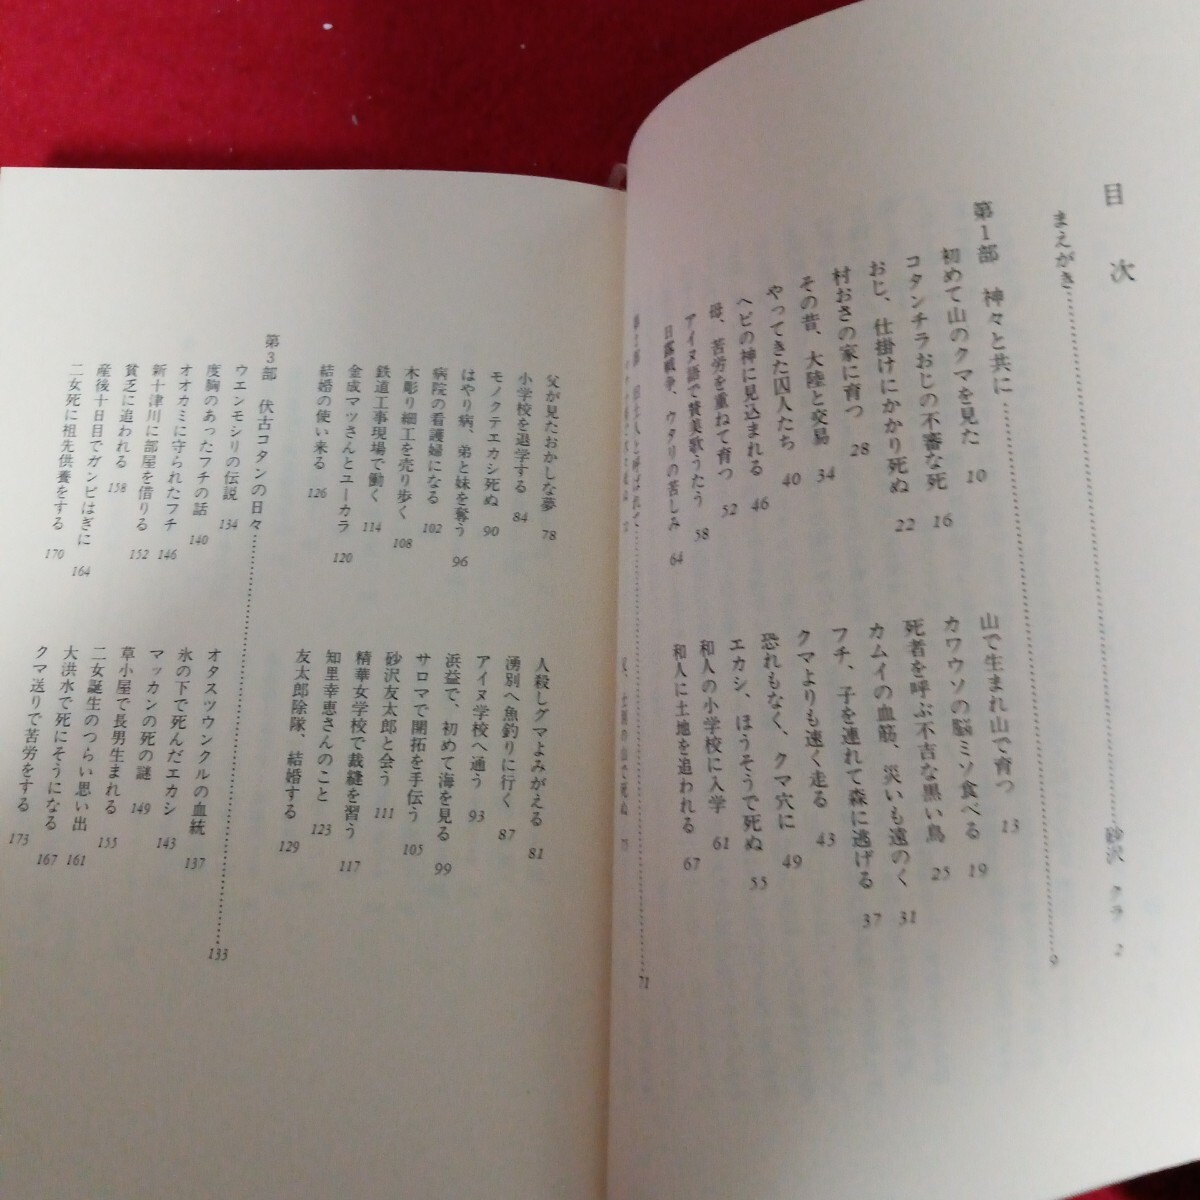 目次
まえがき……砂沢 クラ 2
第1部 神々と共に……9
初めて山のクマを見た 10
山で生まれ山で育つ 13
コタンチラおじの不審な死 16
カワウソの脳ミソ食べる 19
おじ、仕掛けにかかり死ぬ 22
死者を呼ぶ不吉な黒い鳥 25
村おさの家に育つ 28
カムイの血筋、災いも遠のく 31
その昔、大陸と交易 34
フチ、子を連れて森に逃げる 37
やってきた囚人たち 40
クマよりも速く走る 43
ヘビの神に見込まれる 46
恐れもなく、クマ穴に 49
母、苦労を重ねて育つ 52
エカシ、ほうそうで死ぬ 55
アイヌ語で賛美歌うたう 58
和人の小学校に入学 61
日露戦争、ウタリの苦しみ 64
和人に土地を追われる 67
第2部 旧土人と呼ばれて……71
父が見たおかしな夢 78
人殺しグマよみがえる 81
小学校を退学する 84
湧別へ魚釣りに行く 87
モノクテエカシ死ぬ 90
アイヌ学校へ通う 93
はやり病、弟と妹を奪う 96
浜益で、初めて海を見る 99
病院の看護婦になる 102
サロマで開拓を手伝う 105
木彫り細工を売り歩く 108
砂沢友太郎と会う 111
鉄道工事現場で働く 114
精華女学校で裁縫を習う 117
金成マツさんとユーカラ 120
知里幸恵さんのこと 123
結婚の使い来る 126
友太郎除隊、結婚する 129
第3部 伏古コタンの日々……133
ウエンモシリの伝説 134
オタスツウンクルの血統 137
度胸のあったフチの話 140
氷の下で死んだエカシ 143
オオカミに守られたフチ 146
マッカンの死の謎 149
新十津川に部屋を借りる 152
草小屋で長男生まれる 155
貧乏に追われる 158
二女誕生のつらい思い出 161
産後十日目でガンビはぎに 164
大洪水で死にそうになる 167
二女死に祖先供養をする 170
クマ送りで苦労をする 173